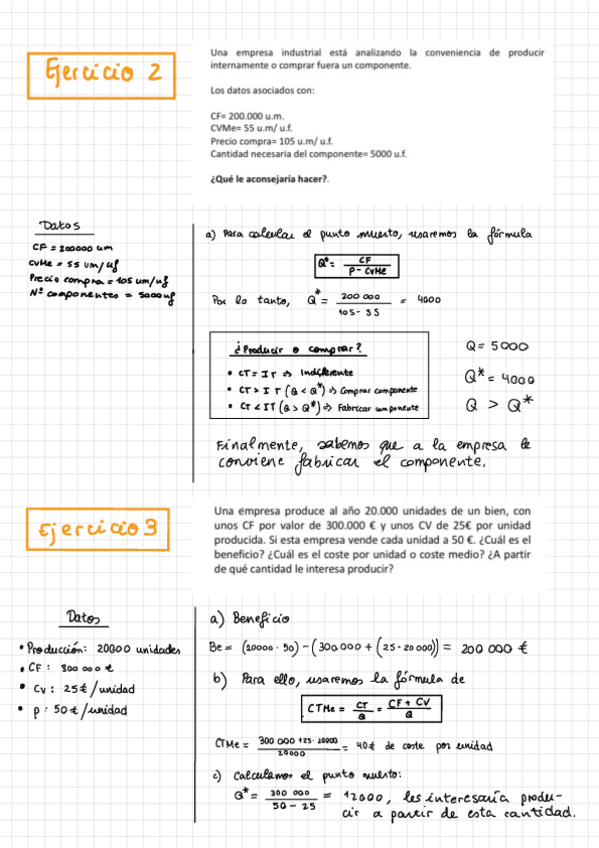 Ejercicio 2
Una empresa industrial está analizando la conveniencia de producir
internamente o comprar fuera un componente.
Los datos asociados con:
CF= 200.000 u.m.
CVMe= 55 u.m/ u.f.
Precio compra= 105 u.m/ u.f.
Cantidad necesaria del componente= 5000 u.f.
¿Qué le aconsejaría hacer?.
Datos
CF = 200000 um
CVMe = 55 um/uf
Precio compra = 105 um/uf
Nº componentes = 5000 uf
a) Para calcular el punto muerto, usaremos la fórmula
Q* = CF / P - CVMe
Por lo tanto, Q* = 200 000 / 105 - 55 = 4000
¿Producir o comprar?
• CT = IT => Indiferente
• CT > IT (Q < Q*) => Comprar componente
• CT < IT (Q > Q*) => Fabricar componente
Q = 5000
Q* = 4000
Q > Q*
Finalmente, sabemos que a la empresa le
conviene fabricar el componente.
Ejercicio 3
Una empresa produce al año 20.000 unidades de un bien, con
unos CF por valor de 300.000 € y unos CV de 25€ por unidad
producida. Si esta empresa vende cada unidad a 50 €. ¿Cuál es el
beneficio? ¿Cuál es el coste por unidad o coste medio? ¿A partir
de qué cantidad le interesa producir?
Datos
• Producción: 20000 unidades
• CF: 300 000 €
• CV: 25€/unidad
• p: 50€/unidad
a) Beneficio
Be = (20000 · 50) - (300000 + (25 · 20000)) = 200 000 €
b) Para ello, usaremos la fórmula de
CTMe = CT / Q = CF + CV / Q
CTMe = 300 000 + 25 · 20000 / 20000 = 40€ de coste por unidad
c) Calculamos el punto muerto:
Q* = 300 000 / 50 - 25 = 12000, les interesaría produ-
cir a partir de esta cantidad.